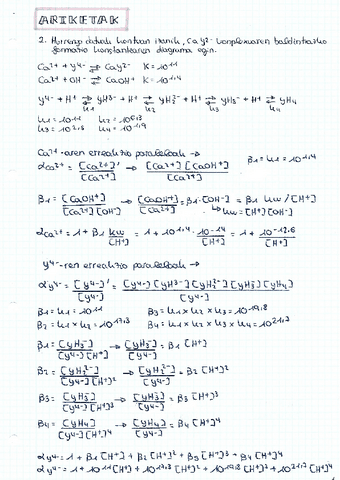 ARIKETAK
2. Hurrengo datuak kontuan izanik, CaY²⁻ konplexuaren baldintzazko
formazio konstantearen diagrama egin.
Ca²⁺ + Y⁴⁻ ⇌ CaY²⁻ K = 10¹¹
Ca²⁺ + OH⁻ ⇌ CaOH⁺ K = 10¹·⁴
Y⁴⁻ + H⁺ ⇌ YH³⁻ + H⁺ ⇌ YH₂²⁻ + H⁺ ⇌ YH₃⁻ + H⁺ ⇌ YH₄
K₁ K₂ K₃ K₄
K₁ = 10¹¹ K₂ = 10⁶·³
K₃ = 10²·⁵ K₄ = 10¹·⁹
Ca²⁺-aren erreakzio paraleloak →
αCa²⁺ = [Ca²⁺]' / [Ca²⁺] = [Ca²⁺] [CaOH⁺] / [Ca²⁺] β₁ = K₁ = 10¹·⁴
β₁ = [CaOH⁺] / [Ca²⁺][OH⁻] → [CaOH⁺] / [Ca²⁺] = β₁·[OH⁻] = β₁ Kw/[H⁺]
↳ Kw = [H⁺][OH⁻]
αCa²⁺ = 1 + β₁ Kw/[H⁺] = 1 + 10¹·⁴ · 10⁻¹⁴/[H⁺] = 1 + 10⁻¹²·⁶/[H⁺]
Y⁴⁻-ren erreakzio paraleloak →
αY⁴⁻ = [Y⁴⁻]' / [Y⁴⁻] = [Y⁴⁻] [YH³⁻] [YH₂²⁻] [YH₃⁻] [YH₄] / [Y⁴⁻]
β₁ = K₁ = 10¹¹ β₃ = K₁ x K₂ x K₃ = 10¹⁹·⁸
β₂ = K₁ x K₂ = 10¹⁷·³ β₄ = K₁ x K₂ x K₃ x K₄ = 10²¹·⁷
β₁ = [YH³⁻] / [Y⁴⁻][H⁺] → [YH³⁻] / [Y⁴⁻] = β₁ [H⁺]
β₂ = [YH₂²⁻] / [Y⁴⁻][H⁺]² → [YH₂²⁻] / [Y⁴⁻] = β₂ [H⁺]²
β₃ = [YH₃⁻] / [Y⁴⁻][H⁺]³ → [YH₃⁻] / [Y⁴⁻] = β₃ [H⁺]³
β₄ = [YH₄] / [Y⁴⁻][H⁺]⁴ → [YH₄] / [Y⁴⁻] = β₄ [H⁺]⁴
αY⁴⁻ = 1 + β₁ [H⁺] + β₂ [H⁺]² + β₃ [H⁺]³ + β₄ [H⁺]⁴
αY⁴⁻ = 1 + 10¹¹ [H⁺] + 10¹⁷·³ [H⁺]² + 10¹⁹·⁸ [H⁺]³ + 10²¹·⁷ [H⁺]⁴